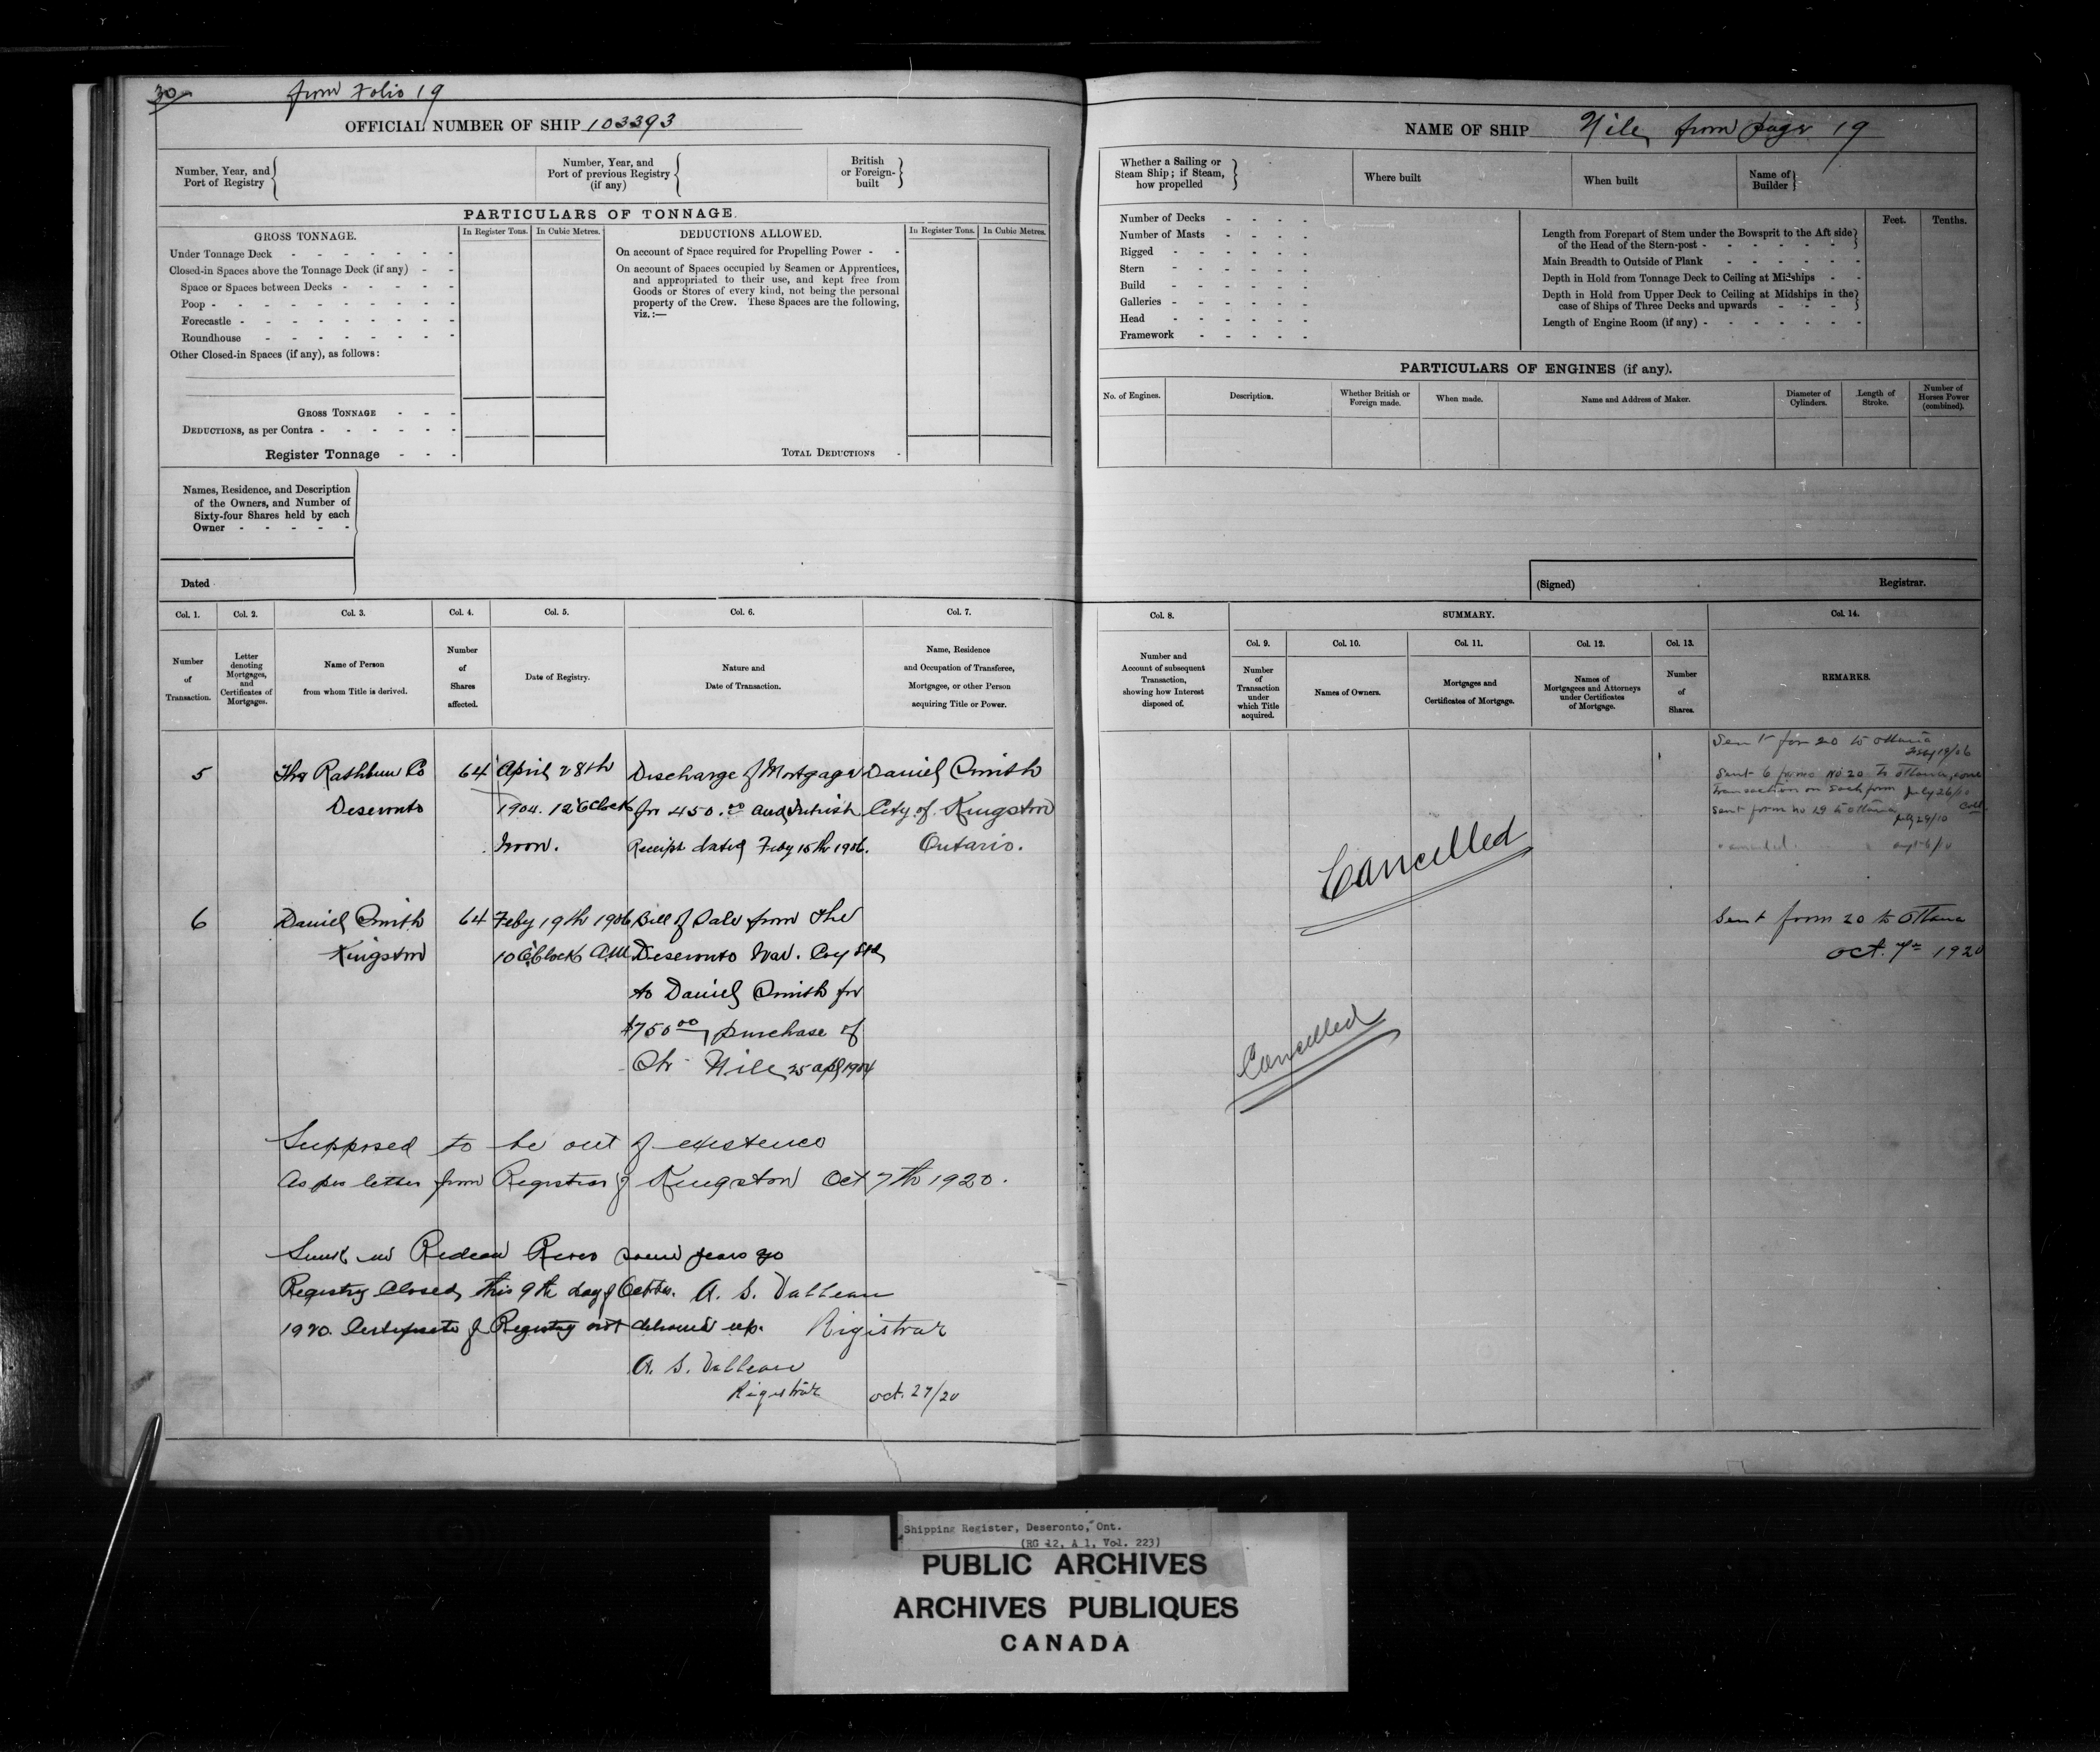 30
from Folio 19
OFFICIAL NUMBER OF SHIP 103393
Number, Year, and
Port of Registry
Number, Year, and
Port of previous Registry
(if any)
British
or Foreign-
built
PARTICULARS OF TONNAGE.
GROSS TONNAGE.
In Register Tons.
In Cubic Metres.
DEDUCTIONS ALLOWED.
In Register Tons.
In Cubic Metres.
Under Tonnage Deck
Closed-in Spaces above the Tonnage Deck (if any)
Space or Spaces between Decks
Poop
Forecastle
Roundhouse
Other Closed-in Spaces (if any), as follows:
GROSS TONNAGE
DEDUCTIONS, as per Contra
Register Tonnage
On account of Space required for Propelling Power
On account of Spaces occupied by Seamen or Apprentices,
and appropriated to their use, and kept free from
Goods or Stores of every kind, not being the personal
property of the Crew. These Spaces are the following,
viz.:—
TOTAL DEDUCTIONS
Names, Residence, and Description
of the Owners, and Number of
Sixty-four Shares held by each
Owner
Dated
Col. 1.
Col. 2.
Col. 3.
Col. 4.
Col. 5.
Col. 6.
Col. 7.
Number
of
Transaction.
Letter
denoting
Mortgages,
and
Certificates of
Mortgages.
Name of Person
from whom Title is derived.
Number
of
Shares
affected.
Date of Registry.
Nature and
Date of Transaction.
Name, Residence
and Occupation of Transferee,
Mortgagee, or other Person
acquiring Title or Power.
5 The Rathbun Co 64 April 28th Discharge of Mortgage Daniel Smith
Deseronto 1904. 12 OClock for 450.00 and City of Kingston
Noon. Receipt dated Feby 15th 1906. Ontario.
6 Daniel Smith 64 Feby 19th 1906 Bill of Sale from The
Kingston 10 OClock AM Deseronto Nav. Coy Ltd
to Daniel Smith for
$750.00 purchase of
Nile 25 Apl 1904
Supposed to be out of existence
As per letter from Registrar of Kingston Oct 7th 1920.
Sunk in Rideau River some years ago
Registry Closed this 9th day of October. A. S. Valleau
1920. Certificate of Registry not delivered up. Registrar
A. S. Valleau
Registrar oct. 27/20
NAME OF SHIP Nile from page 19
Whether a Sailing or
Steam Ship; if Steam,
how propelled
Where built
When built
Name of
Builder
Number of Decks
Number of Masts
Rigged
Stern
Build
Galleries
Head
Framework
Feet.
Tenths.
Length from Forepart of Stem under the Bowsprit to the Aft side
of the Head of the Stern-post
Main Breadth to Outside of Plank
Depth in Hold from Tonnage Deck to Ceiling at Midships
Depth in Hold from Upper Deck to Ceiling at Midships in the
case of Ships of Three Decks and upwards
Length of Engine Room (if any)
PARTICULARS OF ENGINES (if any).
No. of Engines.
Description.
Whether British or
Foreign made.
When made.
Name and Address of Maker.
Diameter of
Cylinders.
Length of
Stroke.
Number of
Horses Power
(combined).
(Signed)
Registrar.
Col. 8.
SUMMARY.
Col. 14.
Col. 9.
Col. 10.
Col. 11.
Col. 12.
Col. 13.
Number and
Account of subsequent
Transaction,
showing how Interest
disposed of.
Number
of
Transaction
under
which Title
acquired.
Names of Owners.
Mortgages and
Certificates of Mortgage.
Names of
Mortgagees and Attorneys
under Certificates
of Mortgage.
Number
of
Shares.
REMARKS.
Sent for 20 to Ottawa
Feby 19/06
Sent 6 forms No 20 to Ottawa, one
transaction on each form July 26/10
Sent form no 19 to Ottawa
July 29/10
Cancelled
Sent from 20 to Ottawa
oct. 7th 1920
Cancelled
Shipping Register, Deseronto, Ont.
(RG 12, A 1, Vol. 223)
PUBLIC ARCHIVES
ARCHIVES PUBLIQUES
CANADA